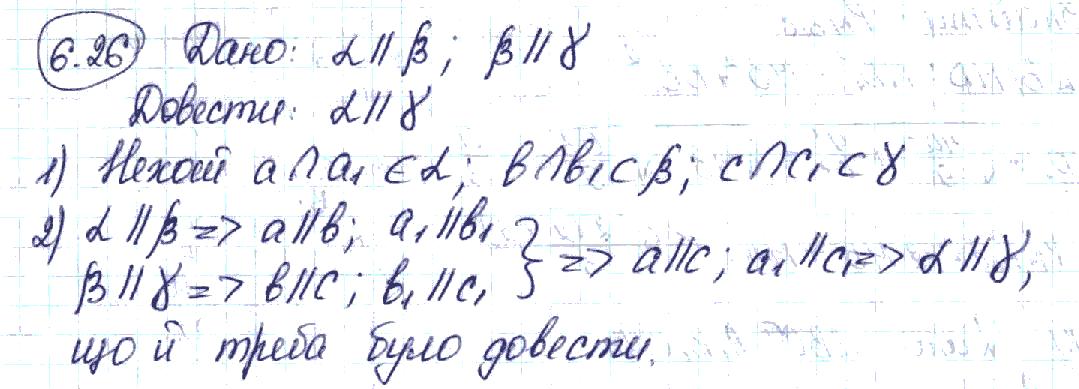 6.26 Дано: α∥β; β∥γ
Довести: α∥γ
1) Нехай a∩a₁ ⊂ α; b∩b₁ ⊂ β; c∩c₁ ⊂ γ
2) α∥β => a∥b; a₁∥b₁
β∥γ => b∥c; b₁∥c₁ } => a∥c; a₁∥c₁ => α∥γ,
що й треба було довести.